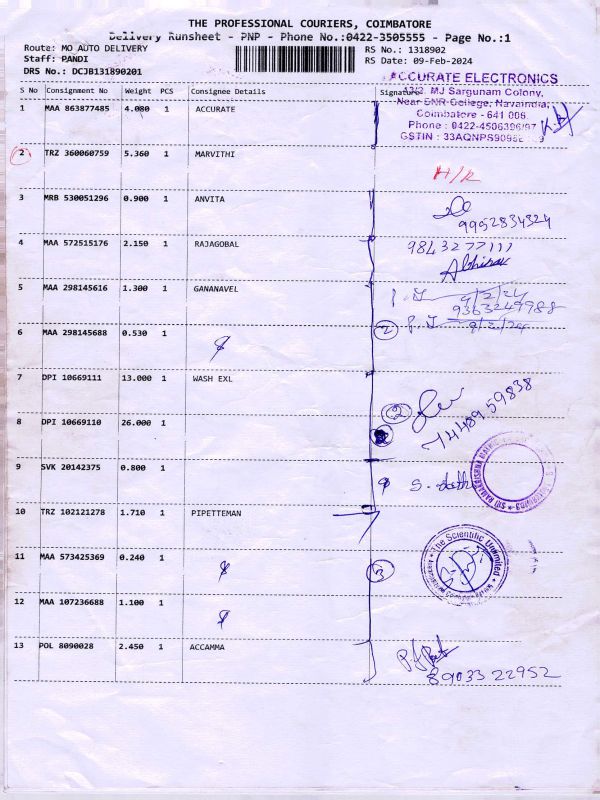 THE PROFESSIONAL COURIERS, COIMBATORE
Delivery Runsheet - PNP - Phone No.:0422-3505555 - Page No.:1
Route: MO AUTO DELIVERY
RS No.: 1318902
Staff: PANDI
RS Date: 09-Feb-2024
DRS No.: DCJB131890201
S No Consignment No Weight PCS Consignee Details Signature
ACCURATE ELECTRONICS
MJ Sargunam Colony,
Near SNR College, Navaindia,
Coimbatore - 641 006.
Phone : 0422-4506396/97
GSTIN :
1 MAA 863877485 4.080 1 ACCURATE
2 TRZ 360060759 5.360 1 MARVITHI
H/R
3 MRB 530051296 0.900 1 ANVITA
9952834324
4 MAA 572515176 2.150 1 RAJAGOBAL
9843277111
Abhinav
5 MAA 298145616 1.300 1 GANANAVEL
9/2/24
9363249988
6 MAA 298145688 0.530 1
2
9/2/24
7 DPI 10669111 13.000 1 WASH EXL
2
7448959838
8 DPI 10669110 26.000 1
9 SVK 20142375 0.800 1
10 TRZ 102121278 1.710 1 PIPETTEMAN
The Scientific Unlimited
11 MAA 573425369 0.240 1
3
12 MAA 107236688 1.100 1
13 POL 8090028 2.450 1 ACCAMMA
8903322952